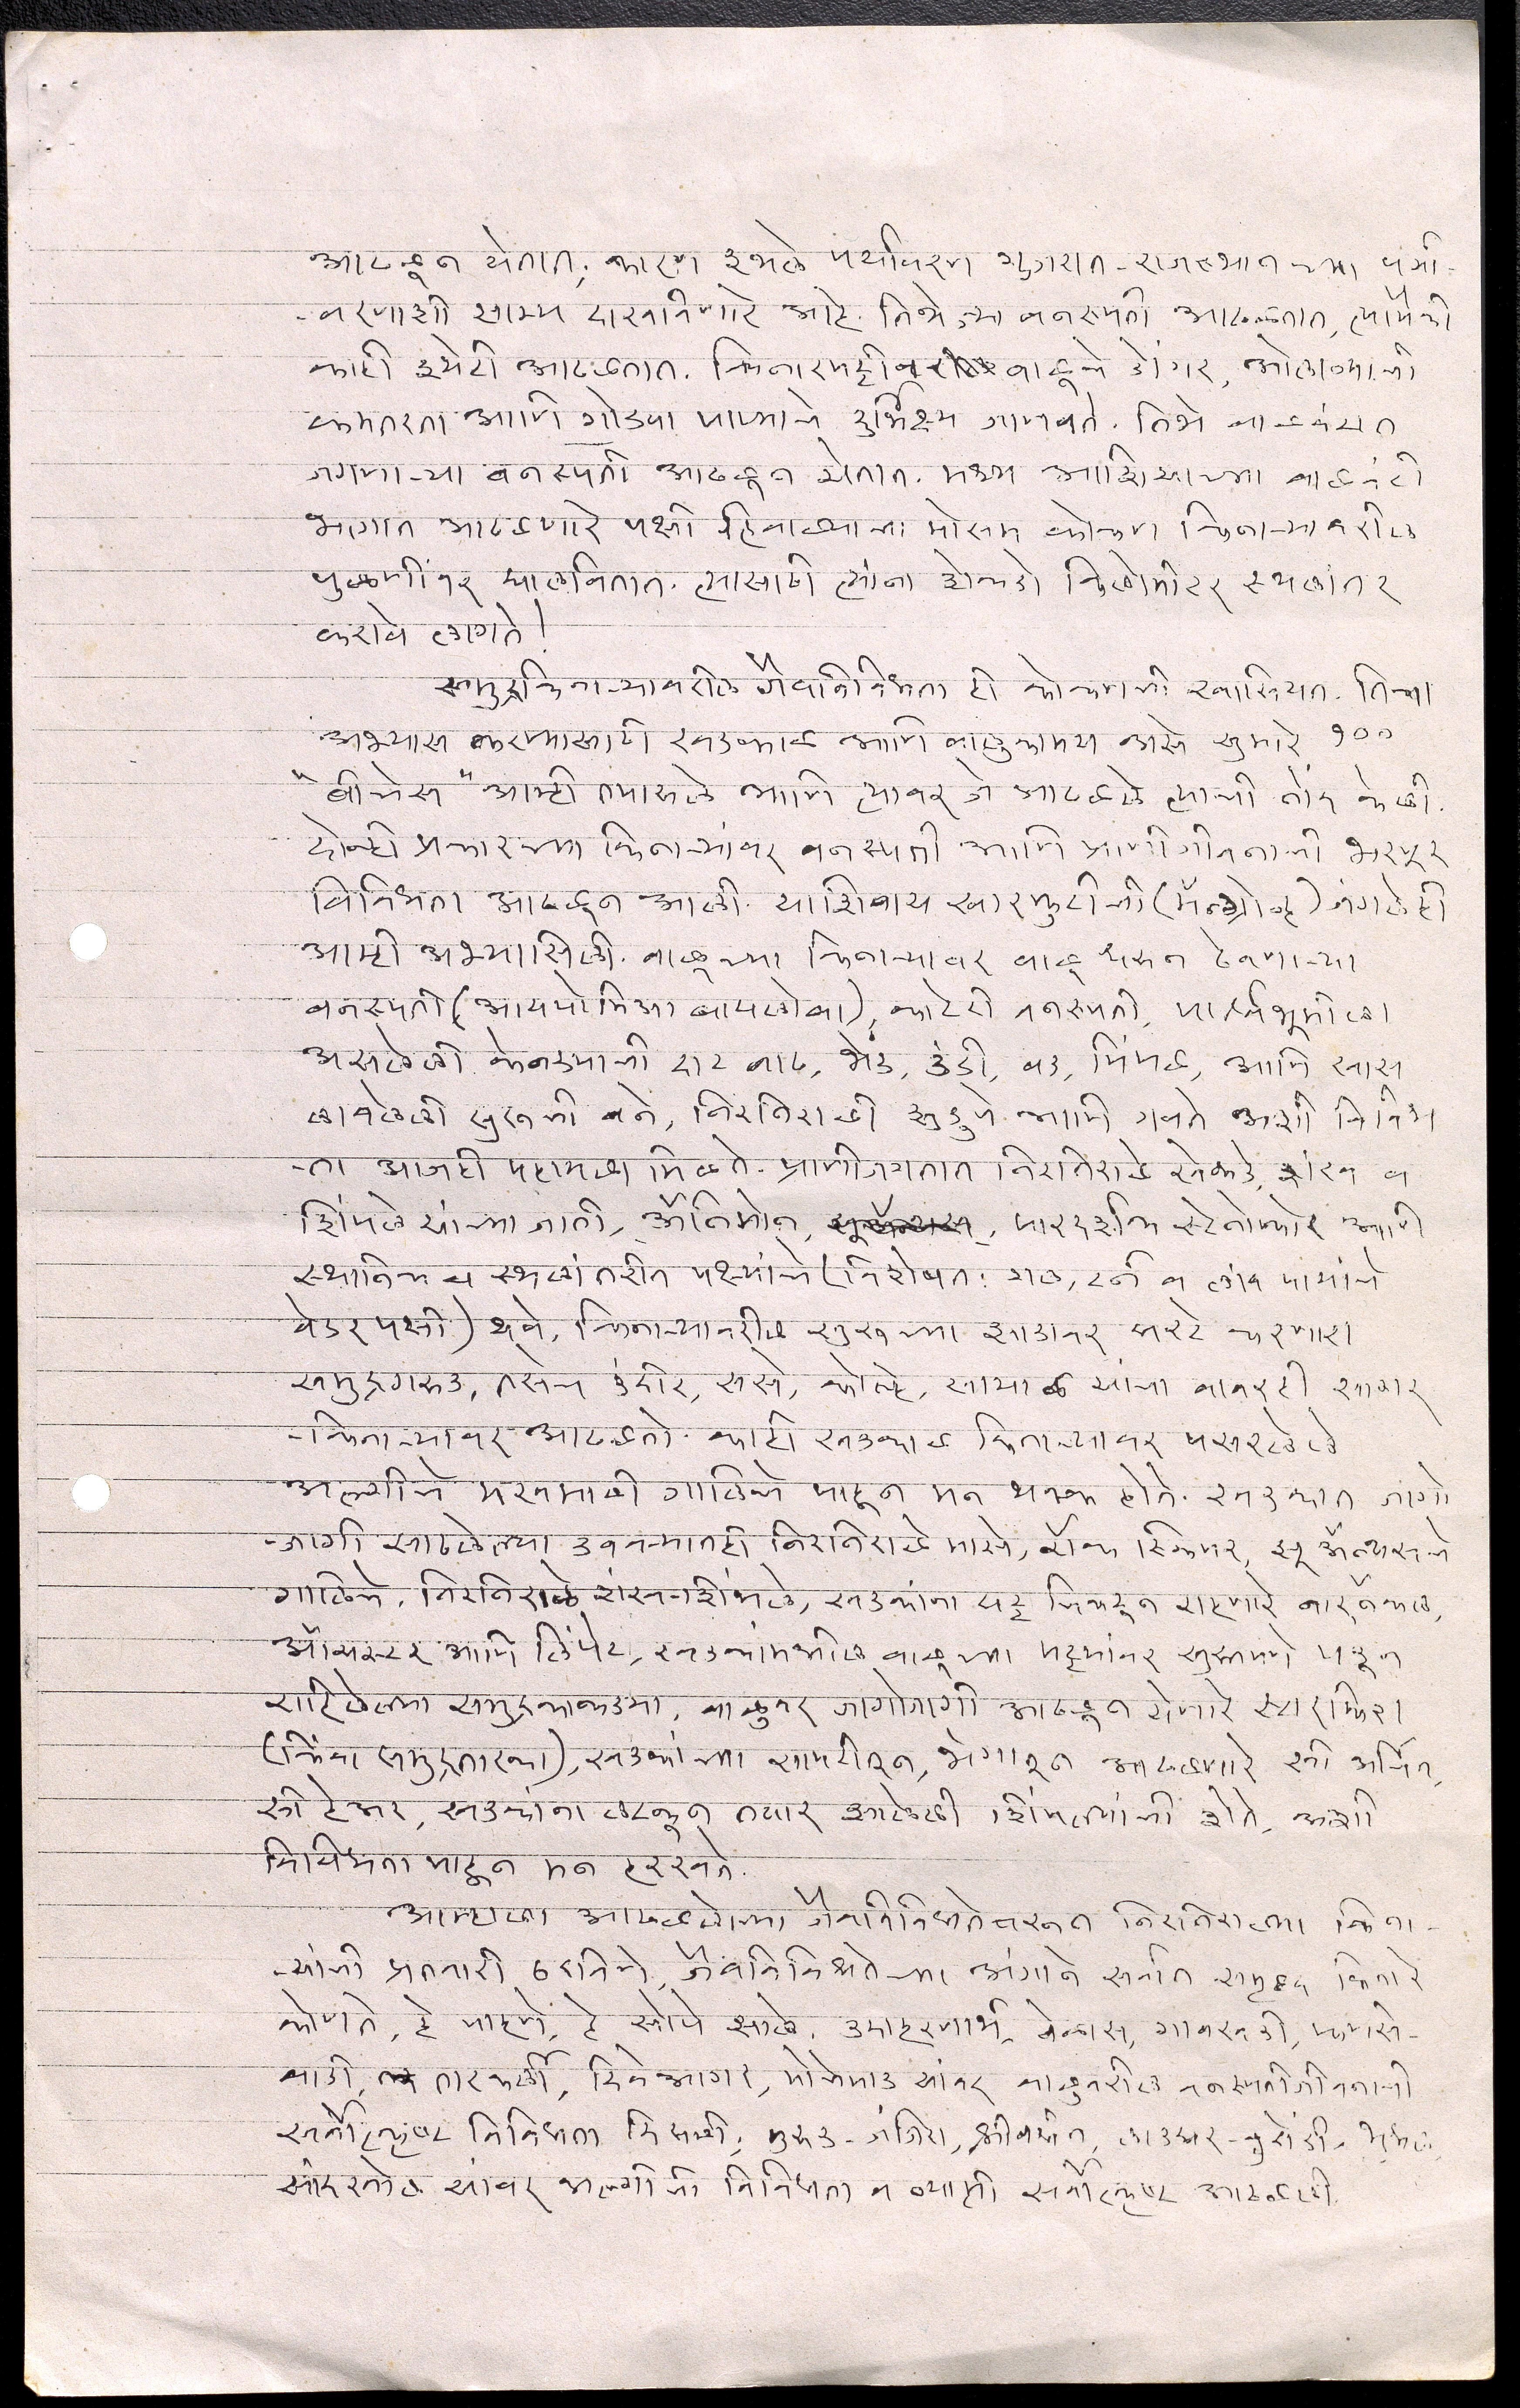 आढळून येतात; कारण इथले पर्यावरण गुजरात-राजस्थानच्या पर्या-
-वरणाशी साम्य दाखविणारे आहे. तिथे ज्या वनस्पती आढळतात, त्यांपैकी
काही इथेही आढळतात. किनारपट्टीवर वाळूचे डोंगर, ओलाव्याची
कमतरता आणि गोड्या पाण्याचे दुर्भिक्ष्य जाणवते. तिथे वाळवंटात
जगणाऱ्या वनस्पती आढळून येतात. मध्य आशियाच्या वाळवंटी
भागात आढळणारे पक्षी हिवाळ्याचा मोसम कोकण किनाऱ्यावरील
पुळणींवर घालवितात. त्यासाठी त्यांना शेकडो किलोमीटर स्थलांतर
करावे लागते!
समुद्रकिनाऱ्यावरील जैवविविधता ही कोकणची खासियत. तिचा
अभ्यास करण्यासाठी खडकाळ आणि वाळुकामय असे सुमारे १००
"बीचेस" आम्ही तपासले आणि त्यावर जे आढळले त्याची नोंद केली.
दोन्ही प्रकारच्या किनाऱ्यांवर वनस्पती आणि प्राणीजीवनाची भरपूर
विविधता आढळून आली. याशिवाय खारफुटीची (मॅन्ग्रोव्ह) जंगलेही
आम्ही अभ्यासिली. वाळूच्या किनाऱ्यावर वाळू धरून ठेवणाऱ्या
वनस्पती (आयपोमिआ बायलोबा), काटेरी वनस्पती, पार्श्वभूमीला
असलेली केवड्याची दाट वाढ, भेंड, उंडी, वड, पिंपळ, आणि खास
लावलेली सुरूची वने, निरनिराळी झुडुपे आणि गवते अशी विविध
-ता आजही पहायला मिळते. प्राणीजगतात निरनिराळे खेकडे, शंख व
शिंपले यांच्या जाती, ॲनिमोन, पारदर्शक स्टेनोफोर आणि
स्थानिक व स्थलांतरीत पक्ष्यांचे (विशेषतः गल, टर्न व लांब पायांचे
वेडर पक्षी) थवे, किनाऱ्यावरील सुरूच्या झाडावर घरटे करणारा
समुद्रगरुड, तसेच उंदीर, ससे, कोल्हे, सायाळ यांचा वावरही सागर
-किनाऱ्यावर आढळतो. काही खडकाळ किनाऱ्यावर पसरलेले
अल्गीचे मखमाली गालिचे पाहून मन थक्क होते. खडकात जागो
-जागी साठलेल्या डबक्यातही निरनिराळे मासे, रॉक स्किपर, झू ॲन्थसचे
गालिचे, निरनिराळे शंख-शिंपले, खडकांना घट्ट चिकटून राहणारे बार्नॅकल,
ऑयस्टर आणि लिंपेट, खडकांमधील वाळूच्या पट्ट्यांवर सुस्तपणे पडून
राहिलेल्या समुद्रकाकड्या, वाळूवर जागोजागी आढळून येणारे स्टारफिश
(किंवा समुद्रतारका), खडकांच्या सापटीतून, भेगातून आढळणारे सी अर्चिन,
सी हेअर, खडकांना लटकून तयार झालेली शिंपल्यांची शेते, अशी
विविधता पाहून मन हरखते.
आम्हाला आढळलेल्या जैवविविधतेवरून निरनिराळ्या किना-
-यांची प्रतवारी ठरविणे, जैवविविधतेच्या अंगाने सर्वात समृद्ध किनारे
कोणते, हे पाहणे, हे सोपे झाले. उदाहरणार्थ, वेळास, गावखडी, फणसे-
वाडी, तारकर्ली, दिवेआगर, मोचेमाड यांवर वाळूवरील वनस्पतीजीवनाची
सर्वोत्कृष्ट विविधता दिसली; मुरुड-जंजिरा, श्रीवर्धन, लाडघर-बुरोंडी,
यांवर अल्गीची विविधता व व्याप्ती सर्वोत्कृष्ट आढळली.